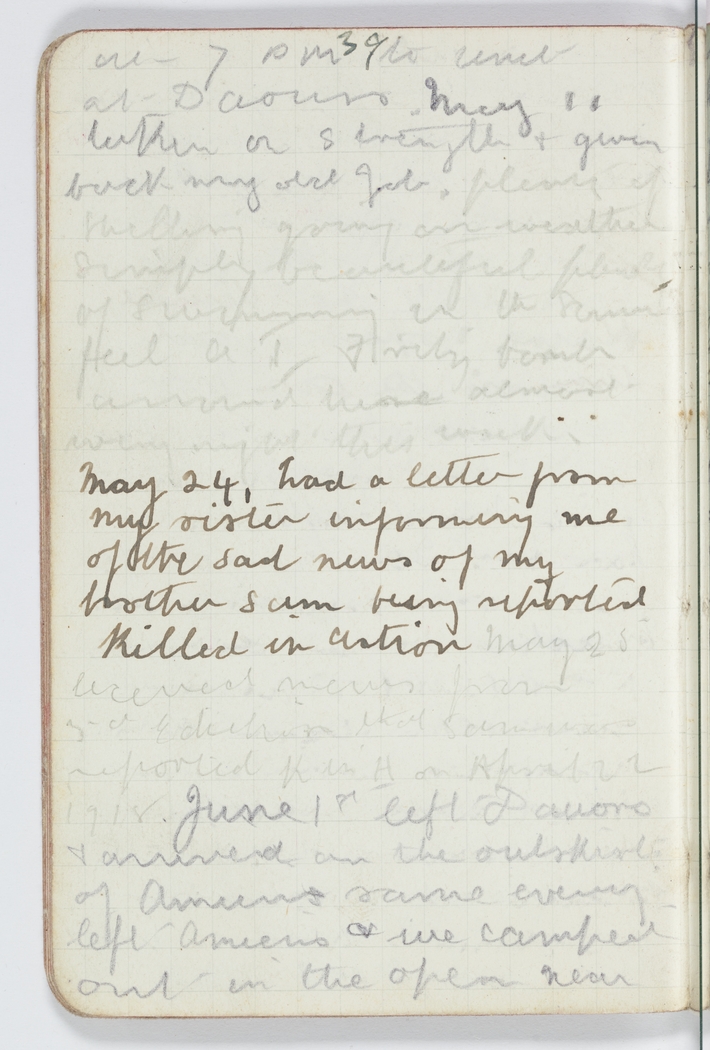 at 7 pm 39 to unit
at Daours. May 11
taken on strength & given
back my old Job, plenty of
shelling going on weather
simply beautiful plenty
of swimming in the Somme
feel A 1, Fritz bomb
around here almost
every night this week.
May 24, had a letter from
my sister informing me
of the sad news of my
brother Sam being reported
Killed in action May 25
received news from
3rd Echelon that Sam was
reported K in A on April 22
1918. June 1st left Daours
& arrived on the outskirts
of Amiens same evening
left Amiens & we camped
out in the open near